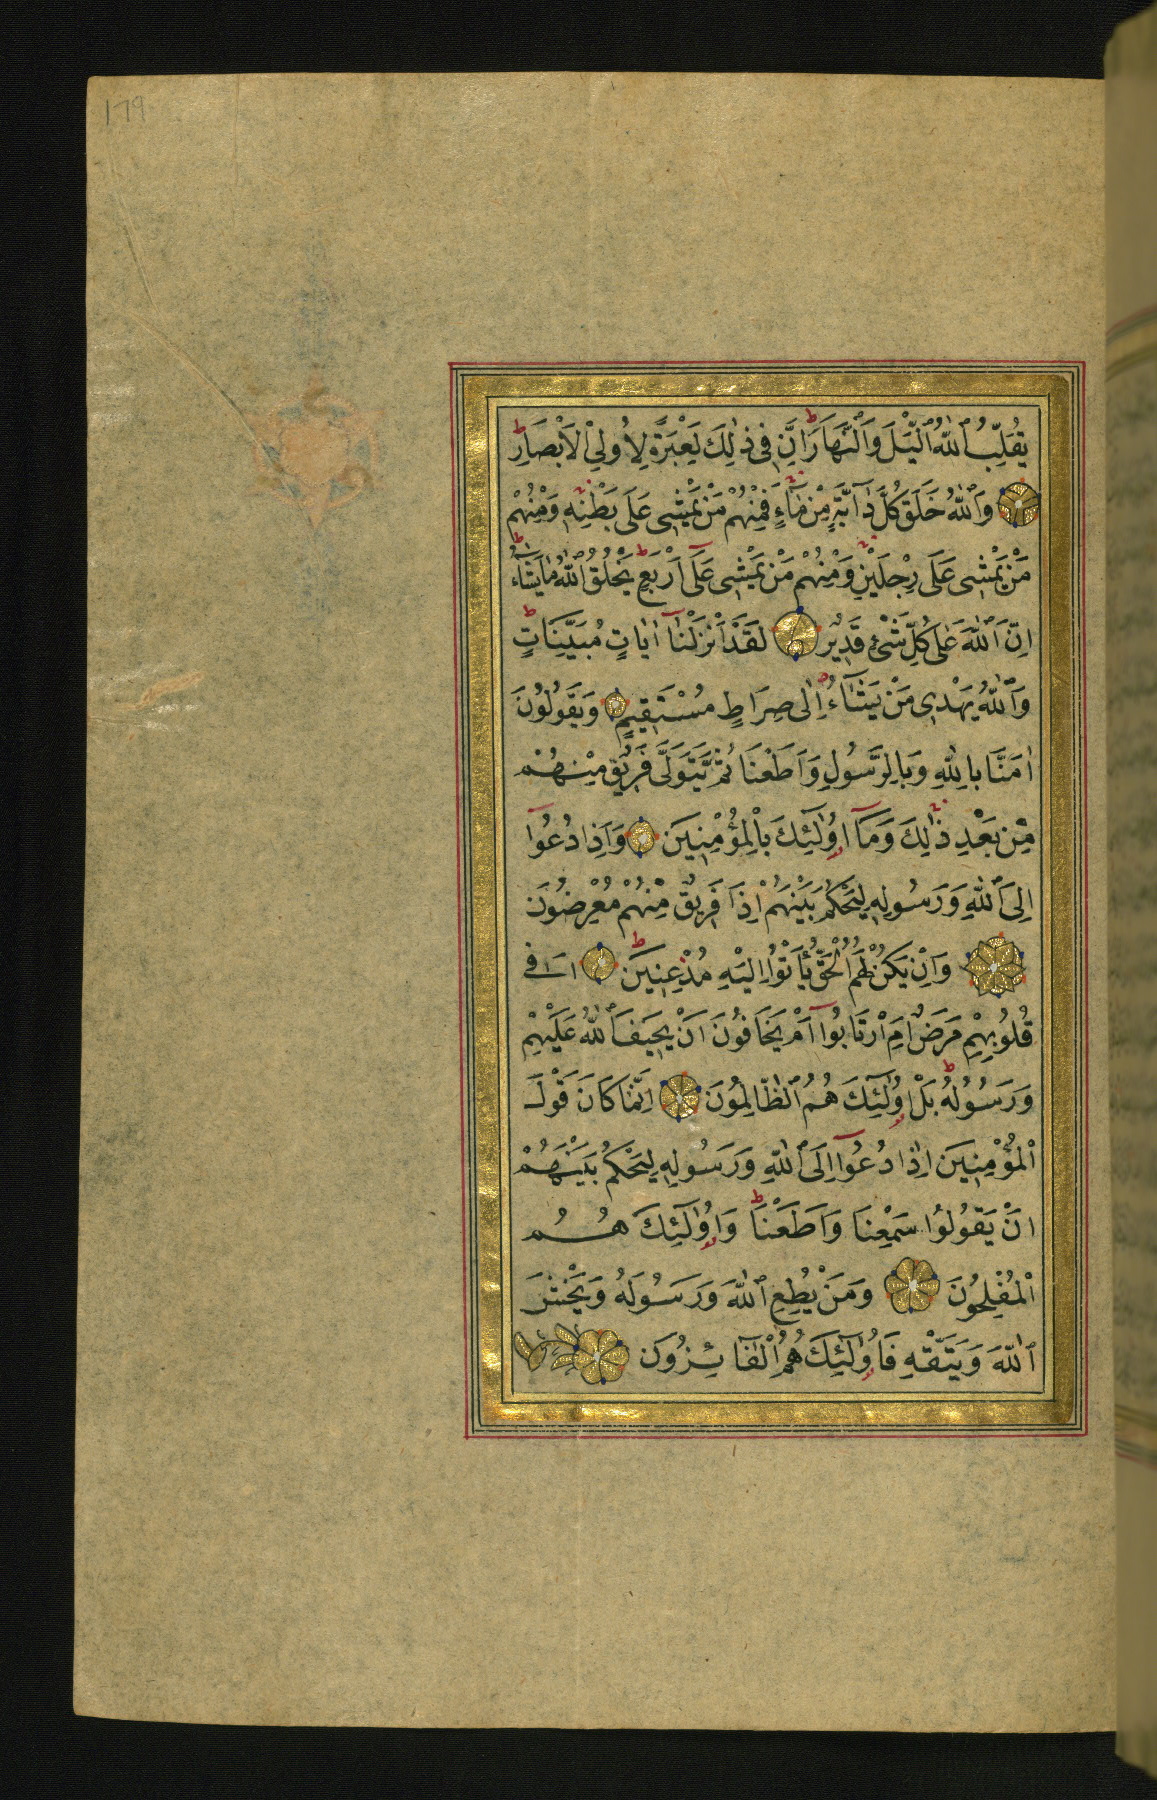 179
يُقَلِّبُ ٱللّٰهُ ٱلَّيْلَ وَٱلنَّهَارَ اِنَّ فِى ذٰلِكَ لَعِبْرَةً لِاُولِى الْاَبْصَارِ
وَٱللّٰهُ خَلَقَ كُلَّ دَآبَّةٍ مِنْ مَٓاءٍ فَمِنْهُمْ مَنْ يَمْشِى عَلَى بَطْنِهِ وَمِنْهُمْ
مَنْ يَمْشِى عَلَى رِجْلَيْنِ وَمِنْهُمْ مَنْ يَمْشِى عَلَٓى اَرْبَعٍ يَخْلُقُ ٱللّٰهُ مَا يَشَٓاءُ
اِنَّ ٱللّٰهَ عَلٰى كُلِّ شَىْءٍ قَدِيرٌ لَقَدْ اَنْزَلْنَٓا اٰيَاتٍ مُبَيِّنَاتٍ
وَٱللّٰهُ يَهْدِى مَنْ يَشَٓاءُ اِلٰى صِرَاطٍ مُسْتَقِيمٍ وَيَقُولُونَ
اٰمَنَّا بِاللّٰهِ وَبِالرَّسُولِ وَاَطَعْنَا ثُمَّ يَتَوَلَّى فَرِيقٌ مِنْهُمْ
مِنْ بَعْدِ ذٰلِكَ وَمَٓا اُولٰٓئِكَ بِالْمُؤْمِنِينَ وَاِذَا دُعُوٓا
اِلَى ٱللّٰهِ وَرَسُولِهِ لِيَحْكُمَ بَيْنَهُمْ اِذَا فَرِيقٌ مِنْهُمْ مُعْرِضُونَ
وَاِنْ يَكُنْ لَهُمُ الْحَقُّ يَأْتُوٓا اِلَيْهِ مُذْعِنِينَ اَفِى
قُلُوبِهِمْ مَرَضٌ اَمِ ارْتَابُوٓا اَمْ يَخَافُونَ اَنْ يَحِيفَ ٱللّٰهُ عَلَيْهِمْ
وَرَسُولُهُ بَلْ اُولٰٓئِكَ هُمُ ٱلظَّالِمُونَ اِنَّمَا كَانَ قَوْلَ
الْمُؤْمِنِينَ اِذَا دُعُوٓا اِلَى ٱللّٰهِ وَرَسُولِهِ لِيَحْكُمَ بَيْنَهُمْ
اَنْ يَقُولُوا سَمِعْنَا وَاَطَعْنَا وَاُولٰٓئِكَ هُمُ
الْمُفْلِحُونَ وَمَنْ يُطِعِ ٱللّٰهَ وَرَسُولَهُ وَيَخْشَ
ٱللّٰهَ وَيَتَّقْهِ فَاُولٰٓئِكَ هُمُ الْفَٓائِزُونَ